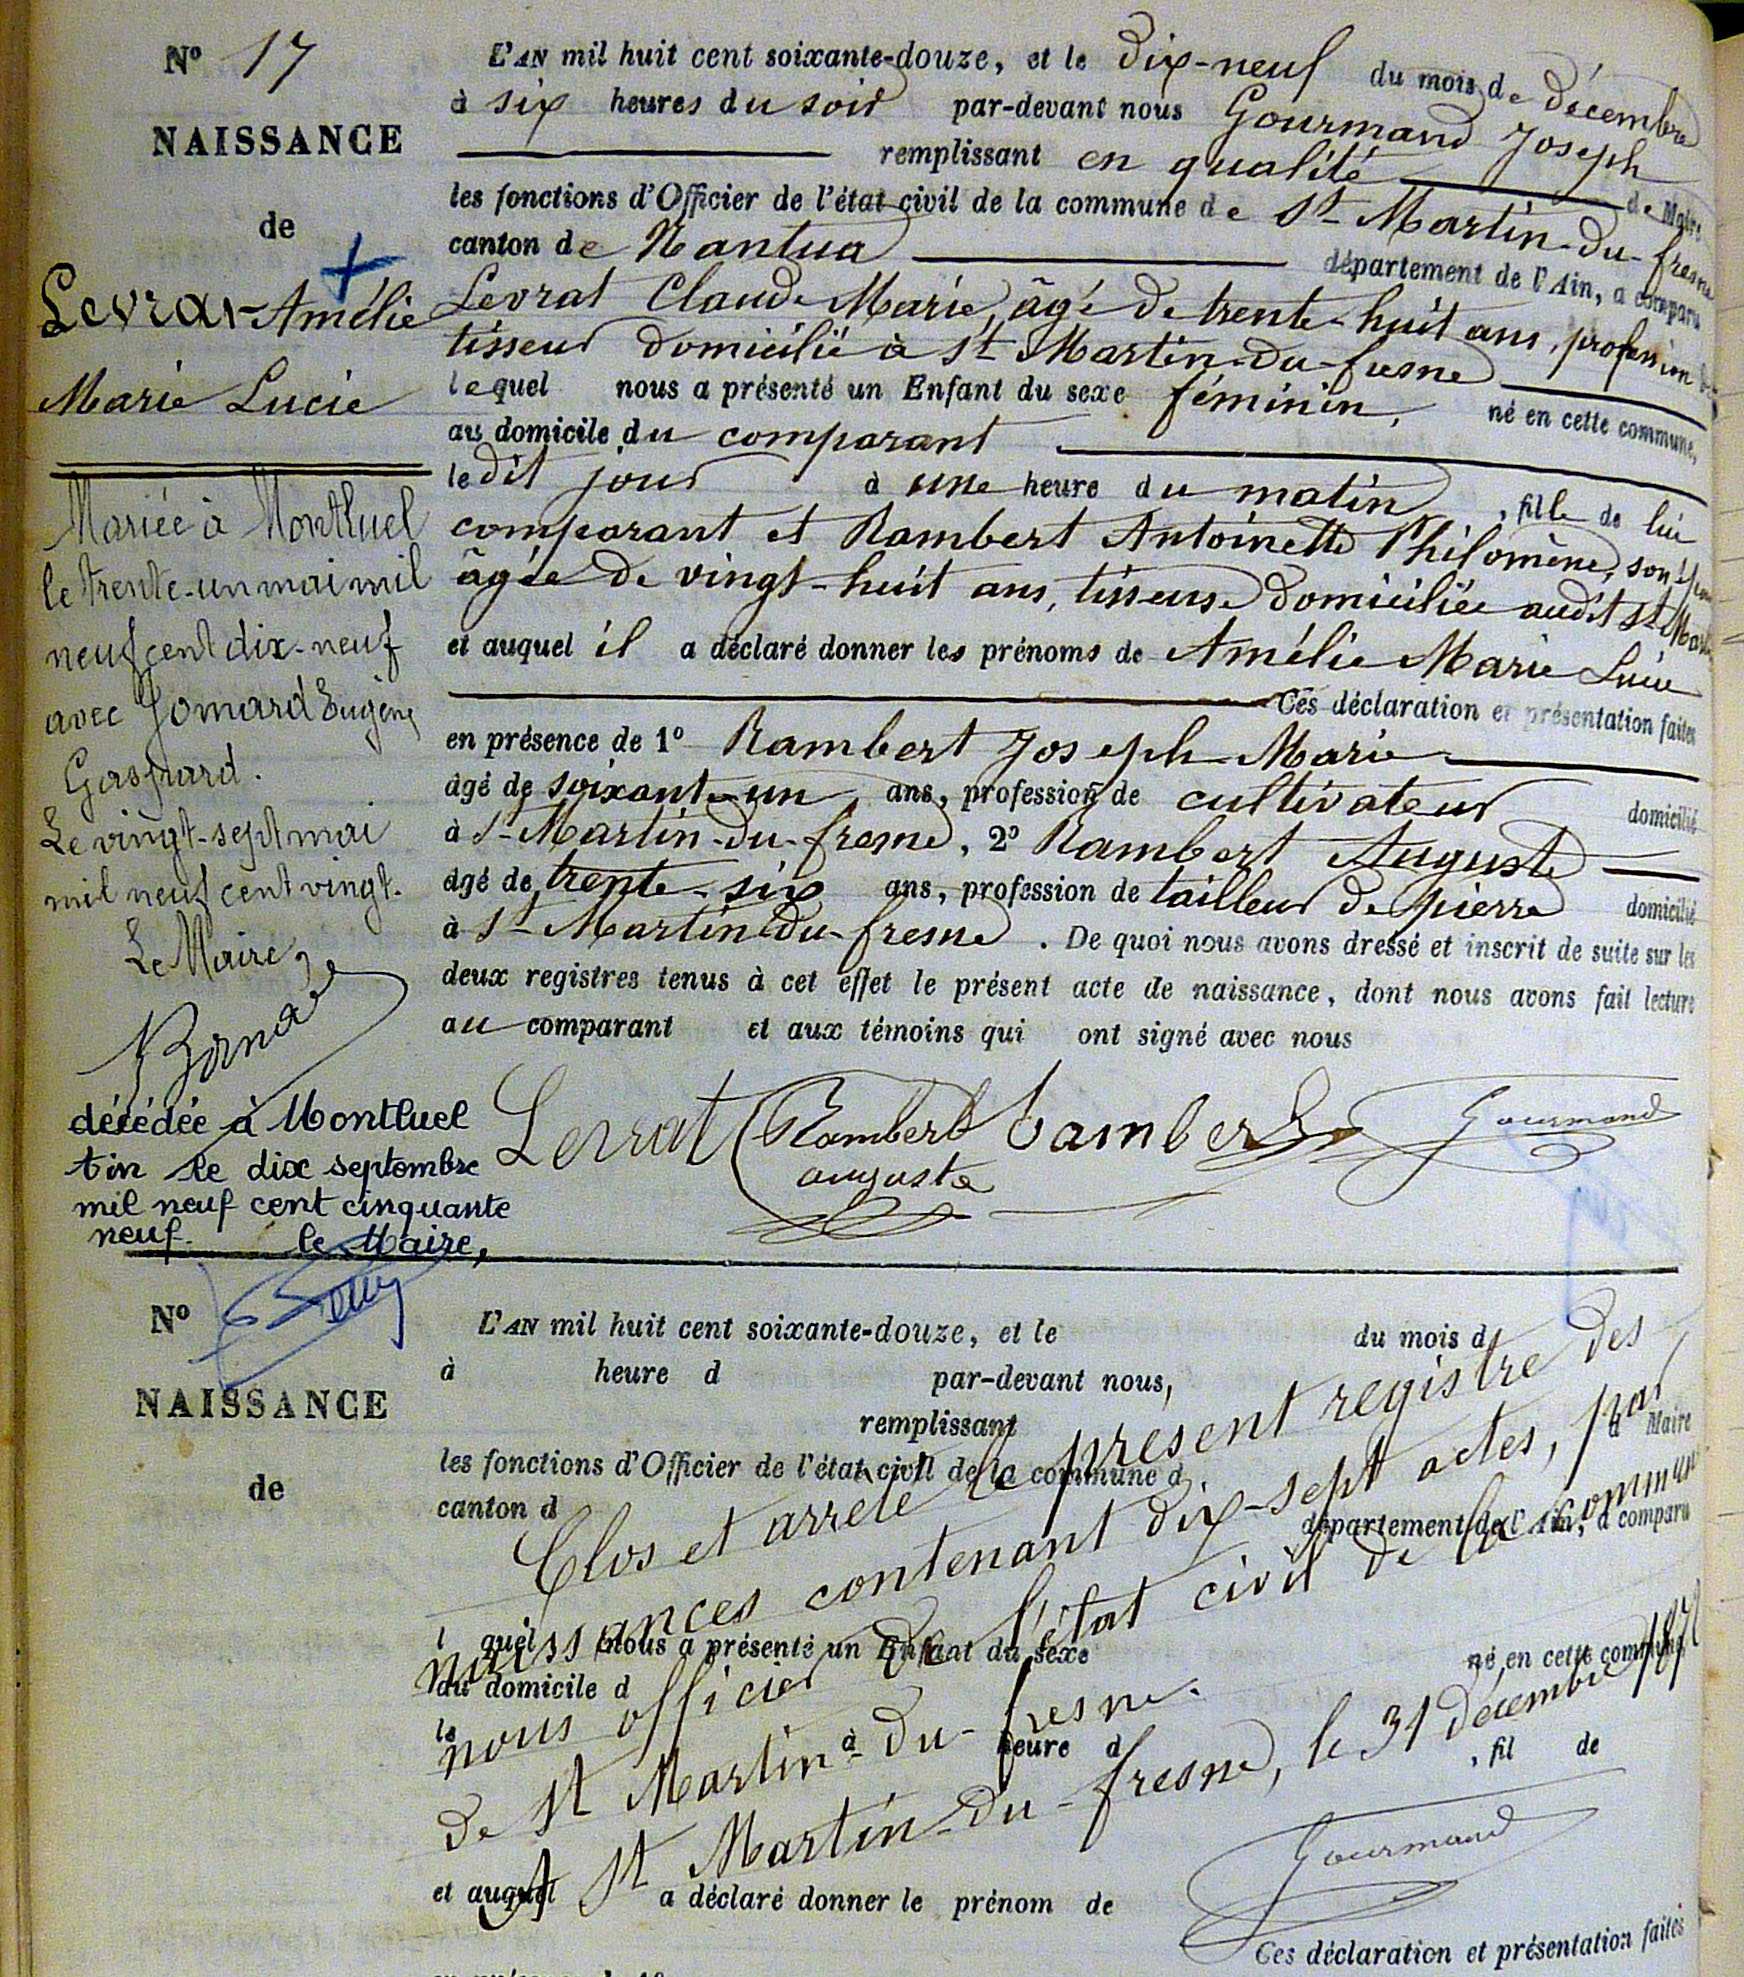 N° 17
NAISSANCE
de
Levrat Amélie
Marie Lucie
Mariée à Montluel
le trente-un mai mil
neuf cent dix-neuf
avec Jomard Eugène
Gaspard.
Le vingt-sept mai
mil neuf cent vingt.
Le Maire,
décédée à Montluel
Ain le dix septembre
mil neuf cent cinquante
neuf. le Maire,
L'AN mil huit cent soixante-douze, et le dix-neuf du mois de décembre
à six heures du soir par-devant nous Gourmand Joseph
remplissant en qualité de Maire
les fonctions d'Officier de l'état civil de la commune de St Martin-du-fresne
canton de Nantua département de l'Ain, a comparu
Levrat Claude Marie, âgé de trente-huit ans, profession de
tisseur domicilié à St Martin-du-fresne
lequel nous a présenté un Enfant du sexe féminin, né en cette commune,
au domicile du comparant
le dit jour à une heure du matin, fille de lui
comparant et Rambert Antoinette Philomène, son épouse
âgée de vingt-huit ans, tisseuse domiciliée audit St Martin
et auquel il a déclaré donner les prénoms de Amélie Marie Lucie
Ces déclaration et présentation faites
en présence de 1° Rambert Joseph Marie
âgé de soixante-un ans, profession de cultivateur domicilié
à St-Martin-du-fresne, 2° Rambert Auguste
âgé de trente-six ans, profession de tailleur de pierre domicilié
à St-Martin-du-fresne. De quoi nous avons dressé et inscrit de suite sur les
deux registres tenus à cet effet le présent acte de naissance, dont nous avons fait lecture
au comparant et aux témoins qui ont signé avec nous
Levrat Rambert auguste Rambert Gourmand
N°
NAISSANCE
de
L'AN mil huit cent soixante-douze, et le du mois d
à heure d par-devant nous,
remplissant
d Maire
les fonctions d'Officier de l'état civil de la commune d
canton d département de l'Ain, a comparu
l quel nous a présenté un Enfant du sexe né en cette commune,
au domicile d
le à heure d , fil de
et auquel a déclaré donner le prénom de
Ces déclaration et présentation faites
Clos et arrêté le présent registre des
naissances contenant dix-sept actes, par
nous officier de l'état civil de la commune
de St Martin-du-fresne.
A St Martin-du-fresne, le 31 décembre 1872
Gourmand